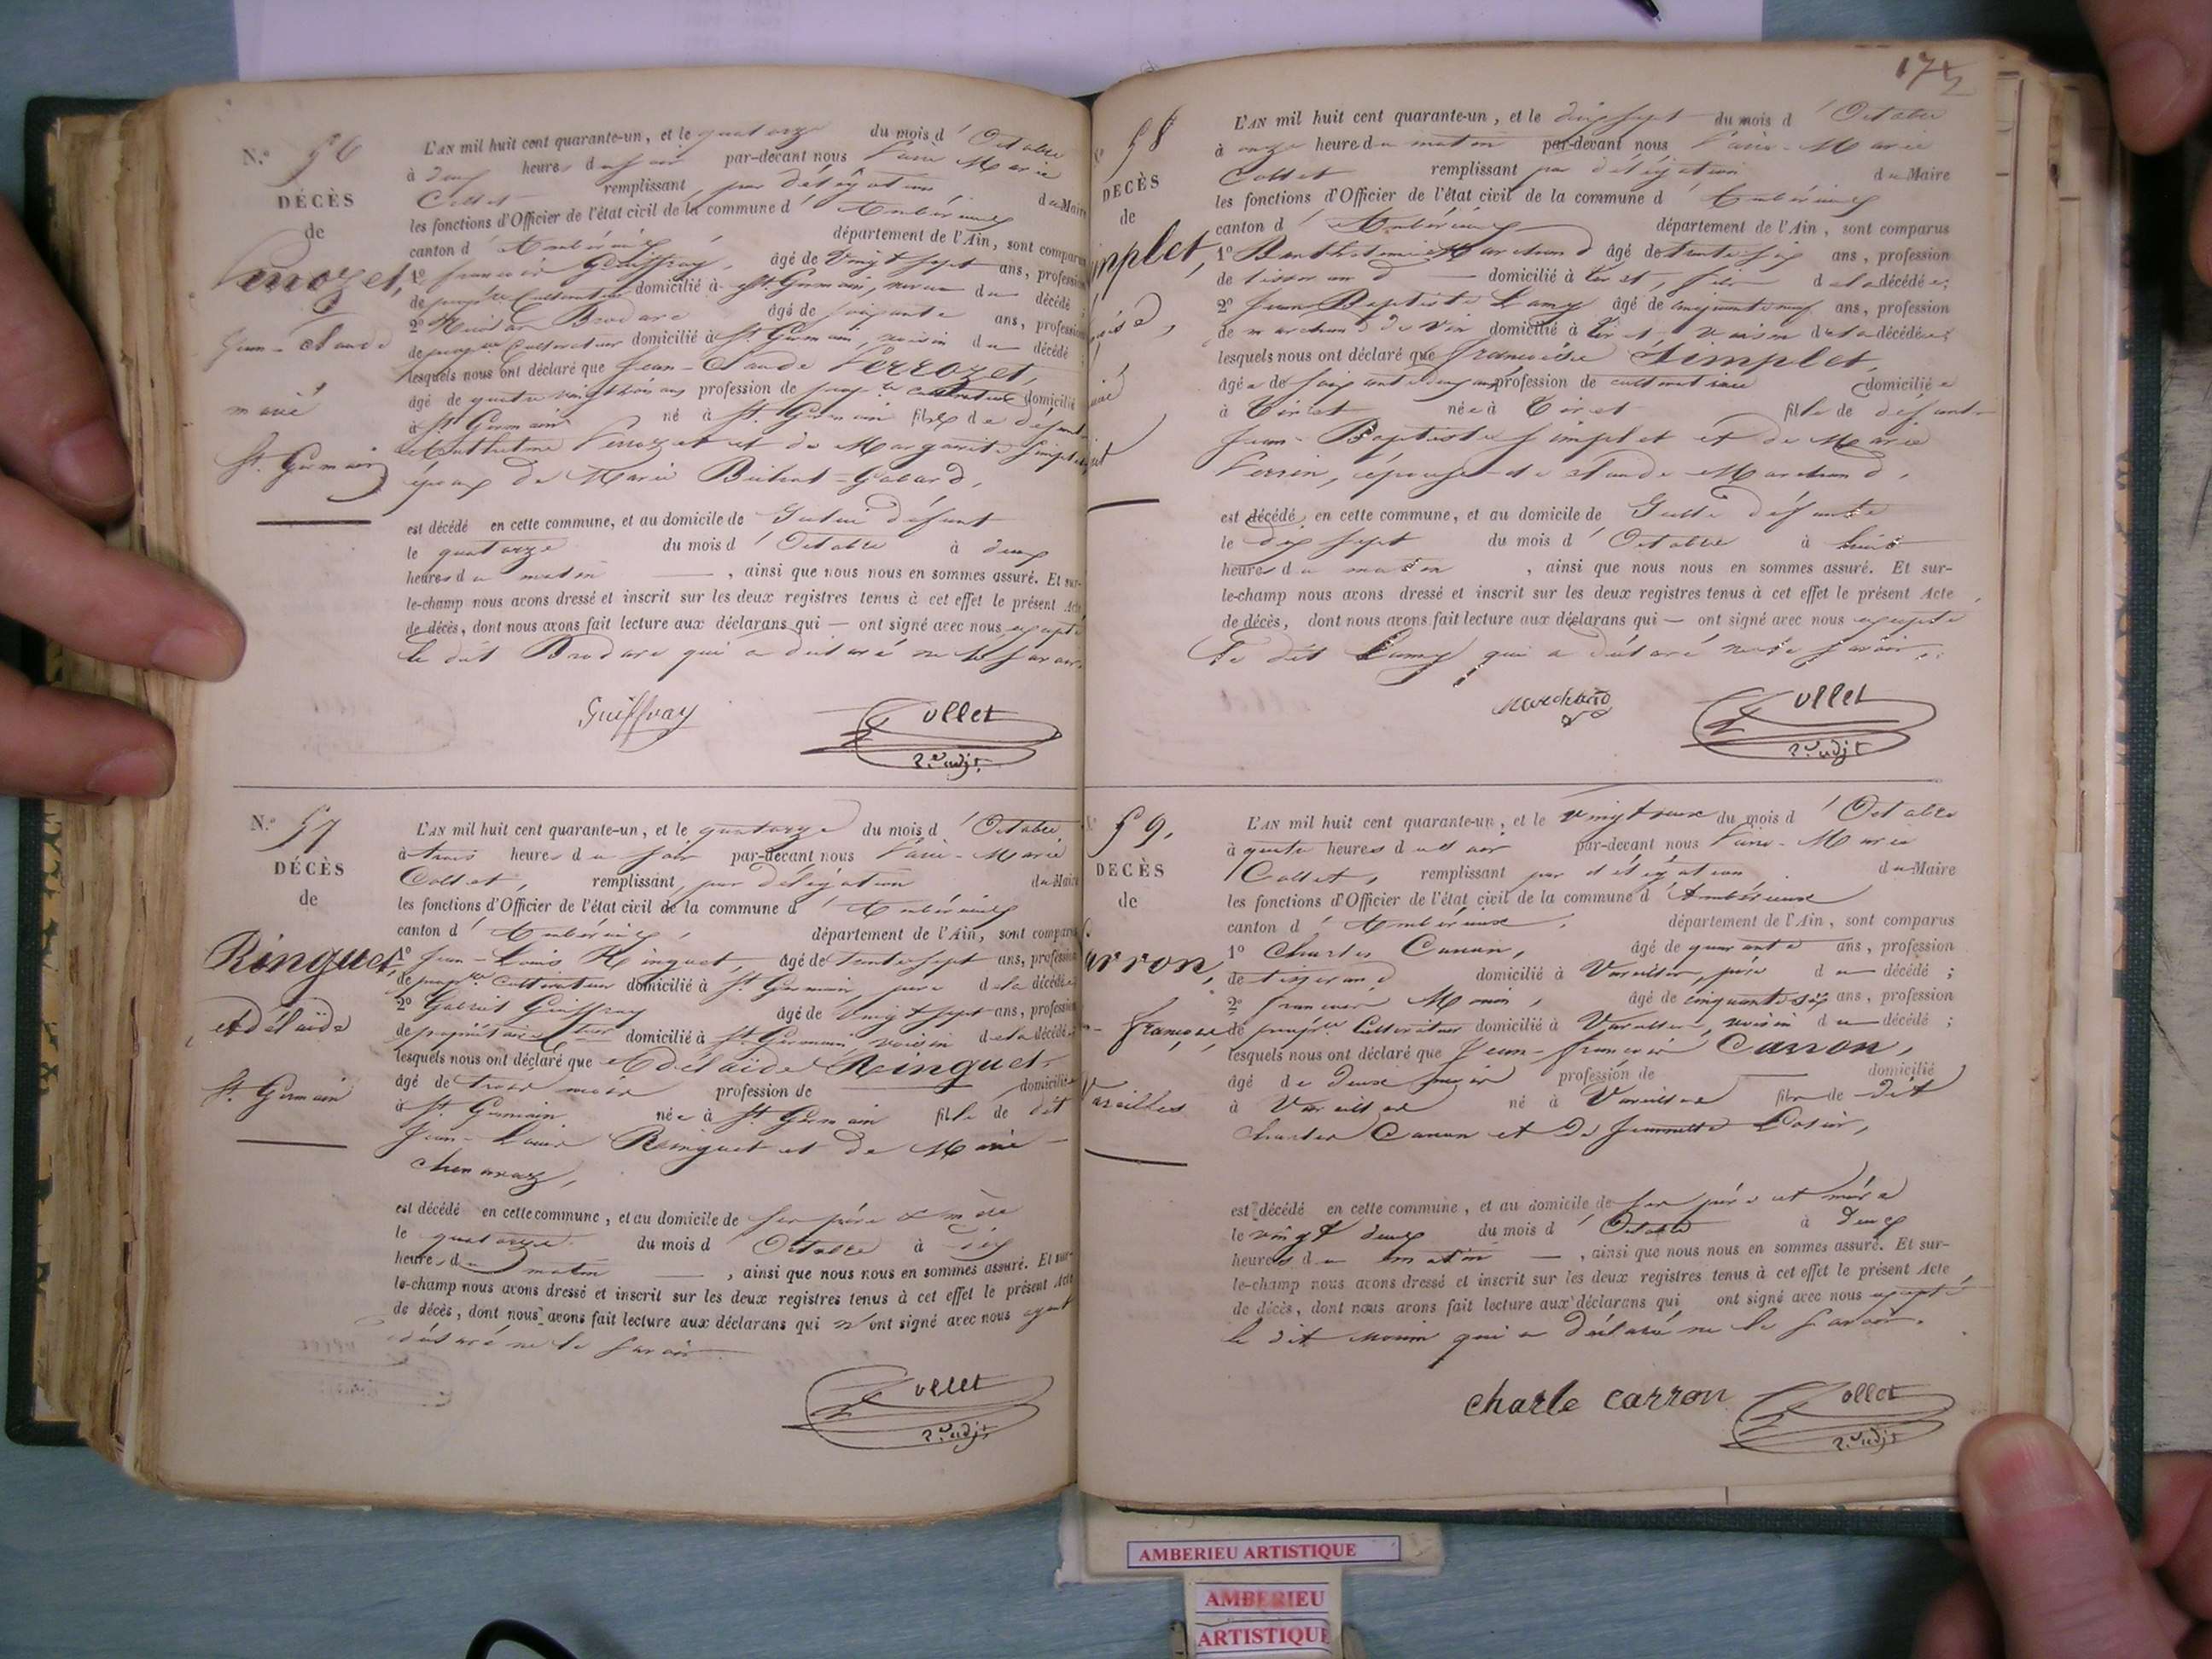 N.o 56
DÉCÈS
de
Jean-Claude
marié
St. Germain
L'AN mil huit cent quarante-un, et le quatorze du mois d'Octobre
à deux heures du soir par-devant nous Marie
Collet remplissant, par délégation du Maire
les fonctions d'Officier de l'état civil de la commune d'Ambérieux
canton d'Ambérieux département de l'Ain, sont comparus
1o françois Guiffray, âgé de Vingt sept ans, profession
de cultivateur domicilié à St. Germain, neveu du décédé;
2o Brodare âgé de soixante ans, profession
de cultivateur domicilié à St. Germain, voisin du décédé
lesquels nous ont déclaré que Jean-Claude Verrozet,
âgé de quatre vingt trois ans profession de domicilié
à St. Germain né à St. Germain fils de défunt
Verrozet et de Margarite Simplet
époux de Marie
est décédé en cette commune, et au domicile de défunt
le quatorze du mois d'Octobre à deux
heures du matin, ainsi que nous nous en sommes assuré. Et sur-
le-champ nous avons dressé et inscrit sur les deux registres tenus à cet effet le présent Acte
de décès, dont nous avons fait lecture aux déclarans qui ont signé avec nous excepté
le dit Brodare qui a déclaré ne le savoir.
Guiffray Collet
2e adjt.
N.o 57
DÉCÈS
de
Ringuet,
Adélaïde
St. Germain
L'AN mil huit cent quarante-un, et le quatorze du mois d'Octobre
à trois heures du soir par-devant nous Marie
Collet, remplissant, par délégation du Maire
les fonctions d'Officier de l'état civil de la commune d'Ambérieux
canton d'Ambérieux, département de l'Ain, sont comparus
1o Jean-Louis Ringuet, âgé de trente sept ans, profession
de cultivateur domicilié à St. Germain, père de la décédée
2o Gabriel Guiffray âgé de vingt sept ans, profession
de propriétaire domicilié à St. Germain voisin de la décédée
lesquels nous ont déclaré que Adélaïde Ringuet,
âgé de trois mois profession de domiciliée
à St. Germain née à St. Germain fille de dit
Jean-Louis Ringuet et de Marie
est décédé en cette commune, et au domicile de ses père & mère
le quatorze du mois d'Octobre à dix
heures du matin, ainsi que nous nous en sommes assuré. Et sur-
le-champ nous avons dressé et inscrit sur les deux registres tenus à cet effet le présent Acte
de décès, dont nous avons fait lecture aux déclarans qui n'ont signé avec nous ayant
déclaré ne le savoir.
Collet
2e adjt
58
DÉCÈS
de
mplet,
L'AN mil huit cent quarante-un, et le dix sept du mois d'Octobre
à onze heure du matin par-devant nous Marie
Collet remplissant par délégation du Maire
les fonctions d'Officier de l'état civil de la commune d'Ambérieux
canton d'Ambérieux département de l'Ain, sont comparus
1o Barthelemie Marchand âgé de trente six ans, profession
de tisserand domicilié à Tiret, fils de la décédée;
2o Jean Baptiste Lamy âgé de cinquante neuf ans, profession
de marchand de vin domicilié à Tiret, voisin de la décédée;
lesquels nous ont déclaré que françoise Simplet,
âgée de soixante deux ans profession de cultivatrice domiciliée
à Tiret née à Tiret fille de défunts
Jean-Baptiste Simplet et de Marie
Perrin, épouse de Claude Marchand,
est décédé, en cette commune, et au domicile de défunte
le dix sept du mois d'Octobre à
heures du matin, ainsi que nous nous en sommes assuré. Et sur-
le-champ nous avons dressé et inscrit sur les deux registres tenus à cet effet le présent Acte
de décès, dont nous avons fait lecture aux déclarans qui ont signé avec nous excepté
le dit Lamy qui a déclaré ne le savoir.
Marchand Collet
2e adjt
59,
DÉCÈS
de
arron,
françois
Vareilles
L'AN mil huit cent quarante-un, et le vingt deux du mois d'Octobre
à quatre heures du soir par-devant nous Marie
Collet, remplissant par délégation du Maire
les fonctions d'Officier de l'état civil de la commune d'Ambérieux
canton d'Ambérieux, département de l'Ain, sont comparus
1o Charles Carron, âgé de quarante ans, profession
de tisserand domicilié à Vareilles, père du décédé;
2o françois Monin, âgé de cinquante six ans, profession
de cultivateur domicilié à Vareilles, voisin du décédé;
lesquels nous ont déclaré que Jean-françois Carron,
âgé de deux mois profession de domicilié
à Vareilles né à Vareilles fils de dit
Charles Carron et de Jeannette
est décédé en cette commune, et au domicile de ses père et mère
le vingt deux du mois d'Octobre à deux
heures du matin, ainsi que nous nous en sommes assuré. Et sur-
le-champ nous avons dressé et inscrit sur les deux registres tenus à cet effet le présent Acte,
de décès, dont nous avons fait lecture aux déclarans qui ont signé avec nous excepté
le dit Monin qui a déclaré ne le savoir.
charle carron Collet
2e adjt
AMBERIEU ARTISTIQUE
AMBERIEU
ARTISTIQUE